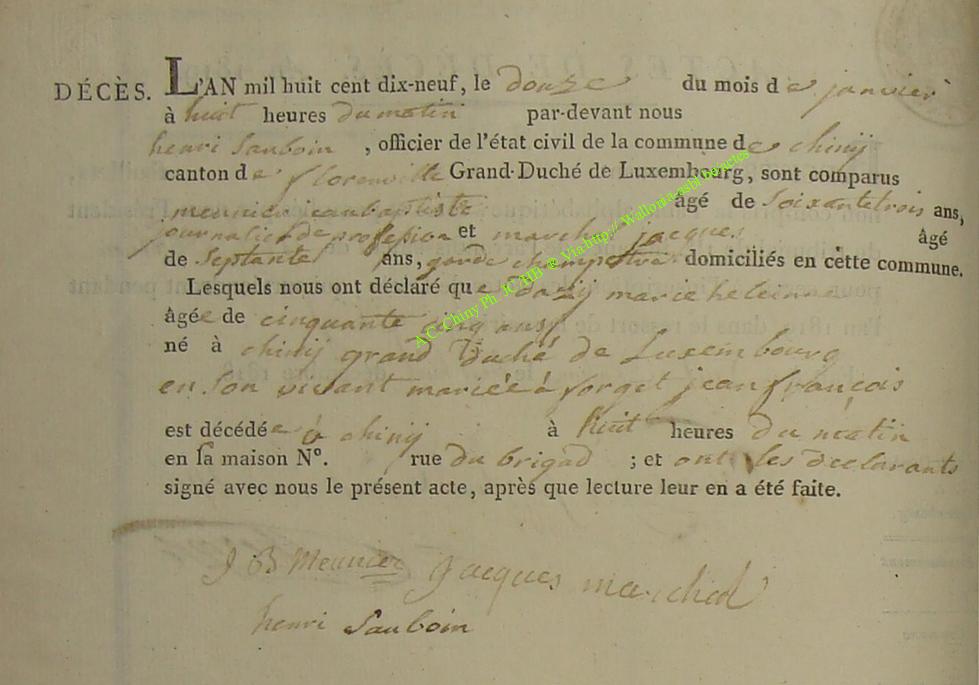 DÉCÈS. L'AN mil huit cent dix-neuf, le douze du mois de janvier
à huit heures du matin par-devant nous
henri Sauboin , officier de l'état civil de la commune de chinij
canton de florenville Grand-Duché de Luxembourg, sont comparus
meunier jeanbaptiste âgé de soixantetrois ans,
journalier de profession et marchal jacques âgé
de septante ans, garde champetre domiciliés en cette commune.
Lesquels nous ont déclaré que marie heleine
âgée de cinquante cinq ans
né à chinij grand Duché de Luxembourg
en son vivant mariéé à forget jean françois
est décédée à chinij à huit heures du matin
en sa maison N°. rue du brigad ; et ont les declarants
signé avec nous le présent acte, après que lecture leur en a été faite.
J B Meunier Jacques marchal
henri Sauboin
AC Chiny Ph. JCHB © Via:http:// Wallonia-asbl.be/actes